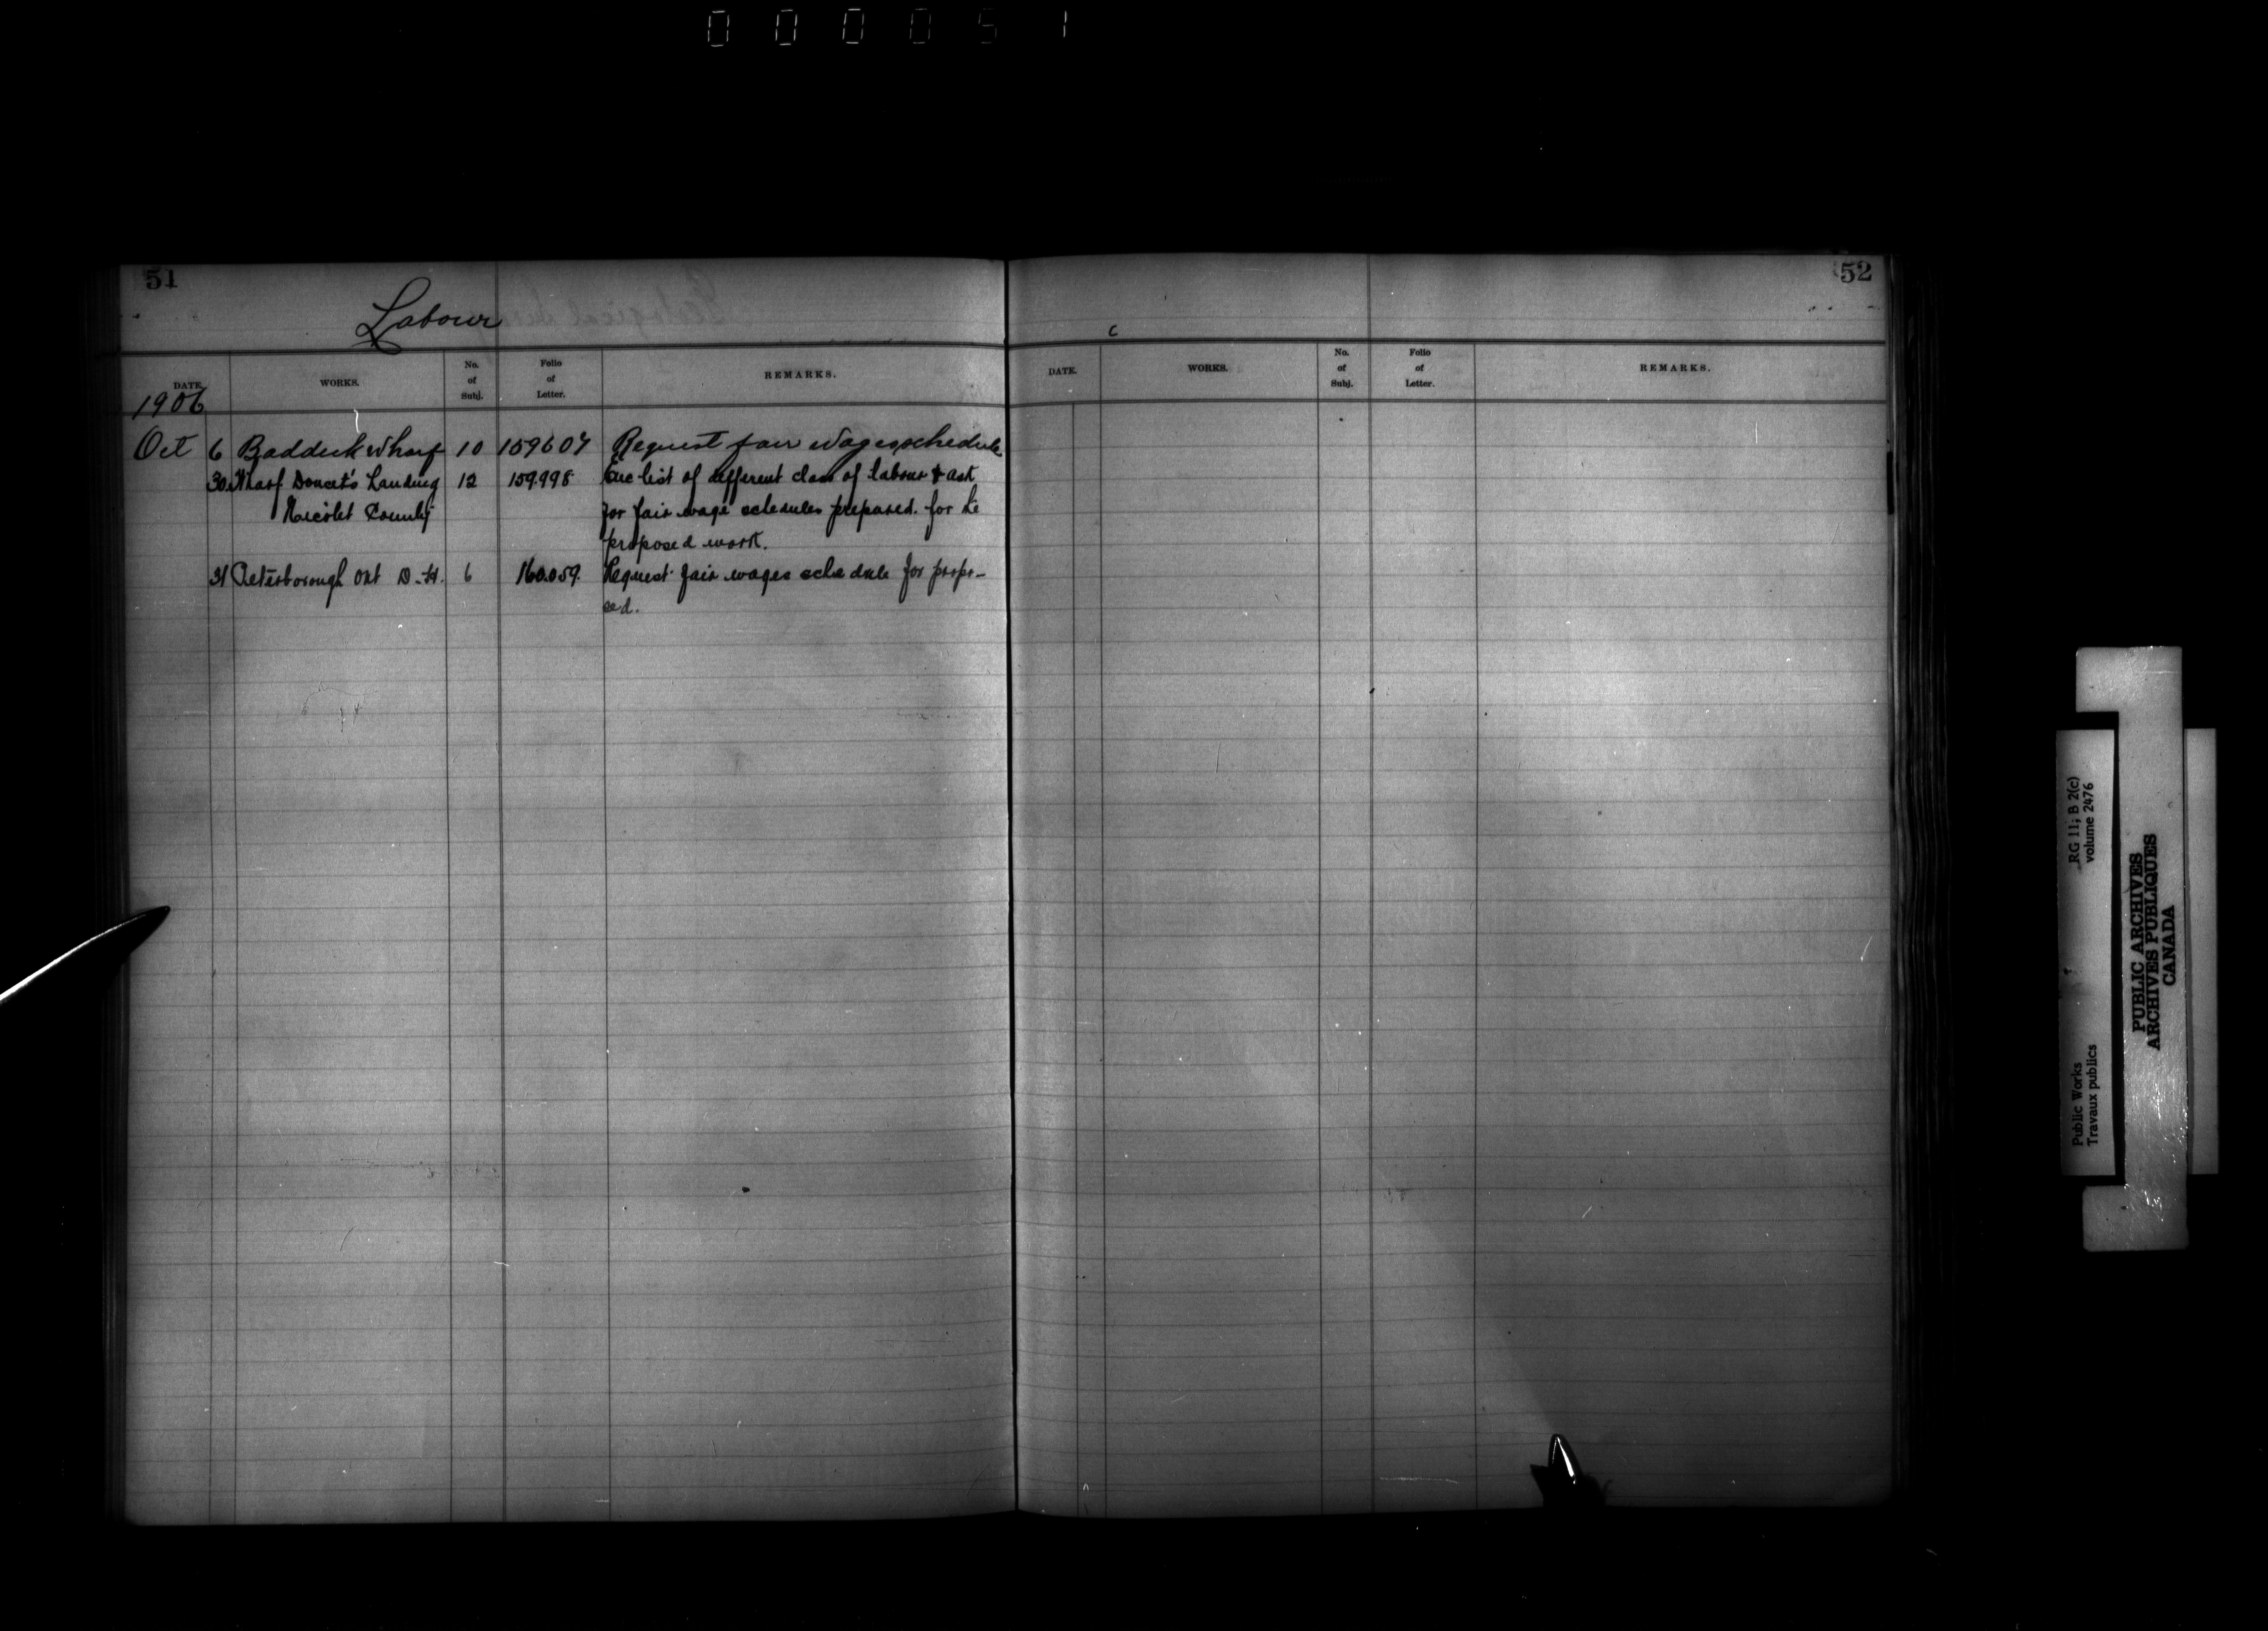 000051
51
Labour
DATE. WORKS. No. of Subj. Folio of Letter. REMARKS.
1906
Oct 6 Baddeck Wharf 10 159607 Request fair wages schedule
30 Wharf Doucet's Landing 12 159.998 Enc list of different class of labour & ask
Nicolet County for fair wage schedules prepared. for
proposed work.
31 Peterborough Ont D.H. 6 160.059. Request fair wages schedule for propo-
sed.
52
DATE. WORKS. No. of Subj. Folio of Letter. REMARKS.
RG 11; B 2(c)
volume 2476
Public Works
Travaux publics
PUBLIC ARCHIVES
ARCHIVES PUBLIQUES
CANADA